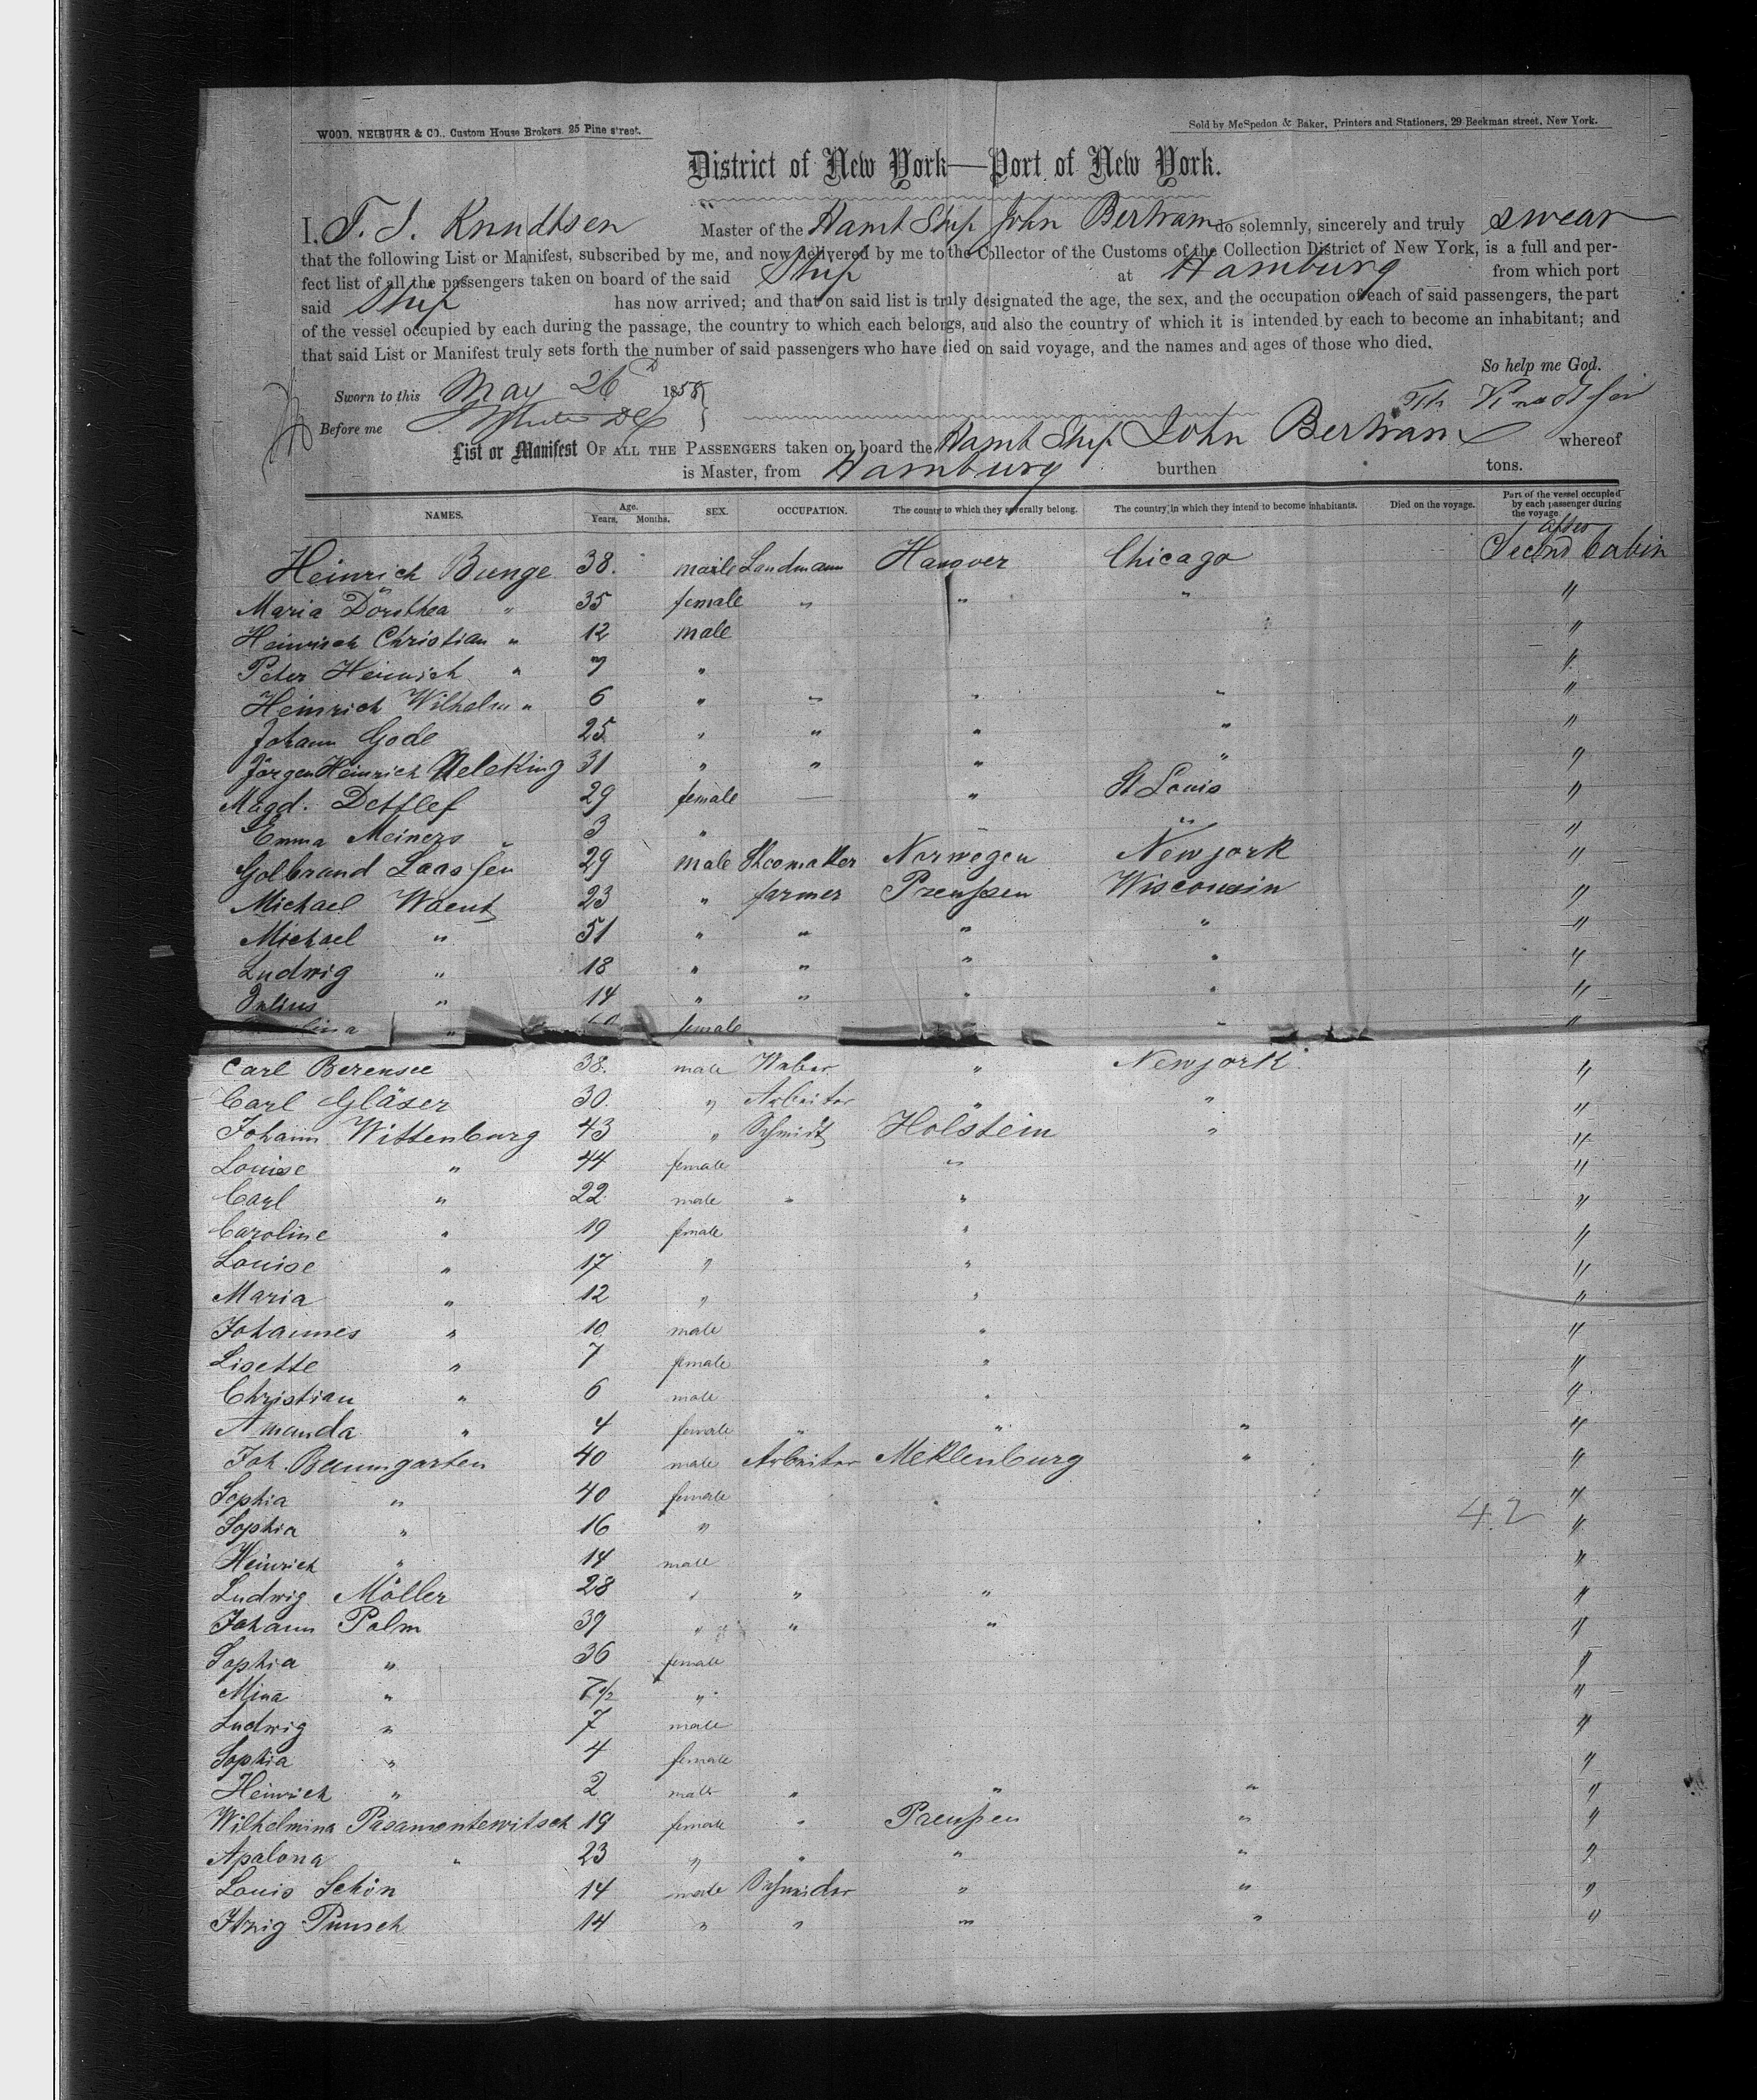 WOOD, NEIBUHR & CO., Custom House Brokers, 25 Pine street.
Sold by McSpedon & Baker, Printers and Stationers, 29 Beekman street, New York.
District of New York—Port of New York.
I, T. J. Knudtsen Master of the Hamb Ship John Bertram do solemnly, sincerely and truly swear
that the following List or Manifest, subscribed by me, and now delivered by me to the Collector of the Customs of the Collection District of New York, is a full and per-
fect list of all the passengers taken on board of the said Ship at Hamburg from which port
said Ship has now arrived; and that on said list is truly designated the age, the sex, and the occupation of each of said passengers, the part
of the vessel occupied by each during the passage, the country to which each belongs, and also the country of which it is intended by each to become an inhabitant; and
that said List or Manifest truly sets forth the number of said passengers who have died on said voyage, and the names and ages of those who died.
So help me God.
Sworn to this May 26 1858
Before me
List or Manifest OF ALL THE PASSENGERS taken on board the Hamb Ship John Bertram whereof
is Master, from Hamburg burthen tons.
NAMES. Age. Years. Months. SEX. OCCUPATION. The country to which they severally belong. The country in which they intend to become inhabitants. Died on the voyage. Part of the vessel occupied by each passenger during the voyage.
after
Heinrich Bunge 38. male Landmann Hanover Chicago Second Cabin
Maria Dorothea " 35 female " " " "
Heinrich Christian " 12 male "
Peter Heinrich " 7 " "
Heinrich Wilhelm " 6 " " " " "
Johann Gode 25 " " " " "
Jörgen Heinrich Ueleking 31 " " " " "
Magd. Dettlef 29 female — " St Louis "
Emma Meiners " 3 " " "
Golbrand Laassen 29 male Shoomaker Norwegen New jork "
Michael Waent 23 " farmer Preußen Wisconsin "
Michael " 51 " " " " "
Ludwig " 18 " " " " "
Julius " 14 " " " " "
" female " "
Carl Berensee 38. male Weber " New jork "
Carl Gläser 30. " Arbeiter " " "
Johann Wittenburg 43 " Schmidt Holstein " "
Louise " 44 female " "
Carl " 22 male " " "
Caroline " 19 female " "
Louise " 17 " " "
Maria " 12 " " "
Johannes " 10 male " "
Lisette " 7 female " "
Christian " 6 male " "
Amanda " 4 female " " " "
Joh. Baumgarten 40 male Arbeiter Meklenburg " "
Sophia " 40 female "
Sophia " 16 " 42 "
Heinrich " 14 male "
Ludwig Möller 28 " " " "
Johann Palm 39 " " " "
Sophia " 36 female "
Mina " 7½ " "
Ludwig " 7 male "
Sophia " 4 female "
Heinrich " 2 male " " " "
Wilhelmina Pasamontewitsch 19 female " Preußen " "
Apalona " 23 " " " " "
Louis Schön 14 male Schneider " " "
Itzig Punsch 14 " " " " "